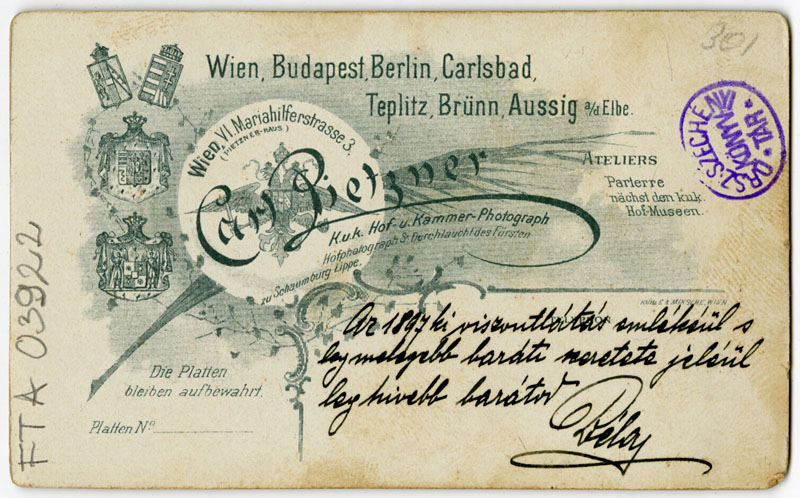 301
Wien, Budapest, Berlin, Carlsbad,
Teplitz, Brünn, Aussig a/d Elbe.
ORSZ. SZÉCHÉNYI
KÖNYV
TÁR
Wien, VI. Mariahilferstrasse 3.
(PIETZNER-HAUS)
Carl Pietzner
K.u.k. Hof- u. Kammer-Photograph
Hofphotograph Sr Durchlaucht des Fürsten
zu Schaumburg Lippe.
ATELIERS
Parterre
nächst den k.u.k.
Hof-Museen.
FTA 03922
WIEN.
Az 1897 ki viszontlátás emlékéül s
legmelegebb baráti szeretete jeléül
leghivebb barátod
Béla
Die Platten
bleiben aufbewahrt.
Platten No